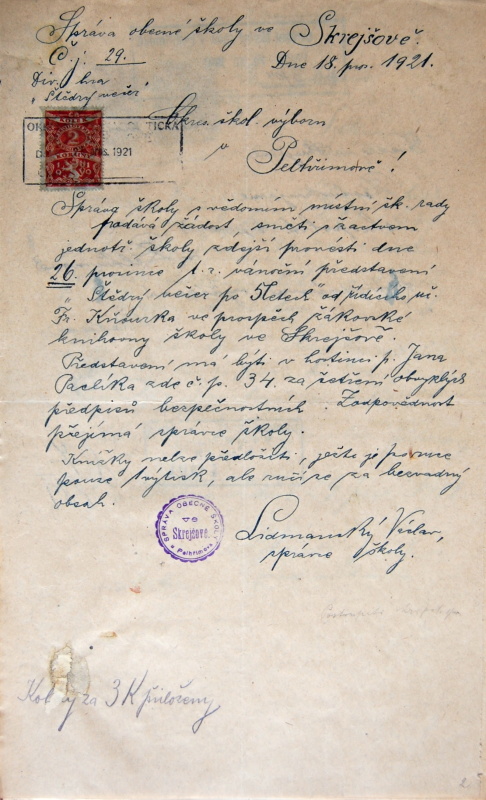 Správa obecné školy ve Skrejšově.
Č. j. 29.
Dne 18. pros. 1921.
Div. hra
„Štědrý večer"
Okres. škol. výboru
v
Pelhřimově!
1921
Správa školy s vědomím místní šk. rady
podává žádost směti s žactvem
jednotř. školy zdejší provésti dne
26. prosince t. r. vánoční představení
„Štědrý večer po 5 letech" od řídícího uč.
Fr. Kňourka ve prospěch žákovské
knihovny školy ve Skrejšově.
Představení má býti v hostinci p. Jana
Pavlíka zde č. p. 34. za šetření obvyklých
předpisů bezpečnostních. Zodpovědnost
přejímá správce školy.
Knížky nelze předložiti, ježto je pouze
pouze 1 výtisk, ale ručíme za bezvadný
obsah.
SPRÁVA OBECNÉ ŠKOLY
ve
Skrejšově.
u Pelhřimova
Lidmanský Václav,
správce školy.
Kolky za 3 K přiloženy